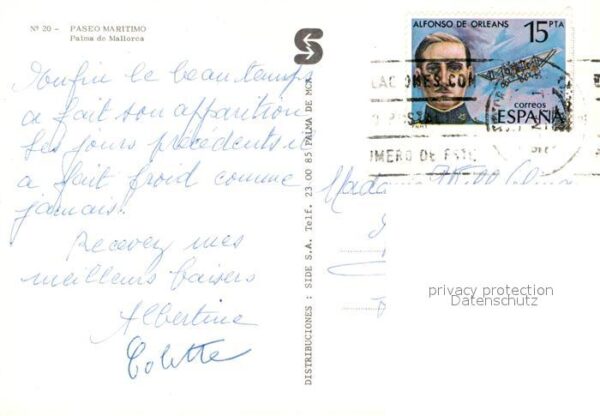 Nº 20 - PASEO MARITIMO
Palma de Mallorca
Enfin le beau temps
a fait son apparition
Les jours précédents il
a fait froid comme
jamais.
Recevez mes
meilleurs baisers
Albertine
Colette
DISTRIBUCIONES : SIDE S.A. Telf. 23 00 85 PALMA DE MCA.
S
ALFONSO DE ORLEANS
15 PTA
correos
ESPAÑA
LACIONES CON
POSTAL
MERO DE
Madame
privacy protection
Datenschutz